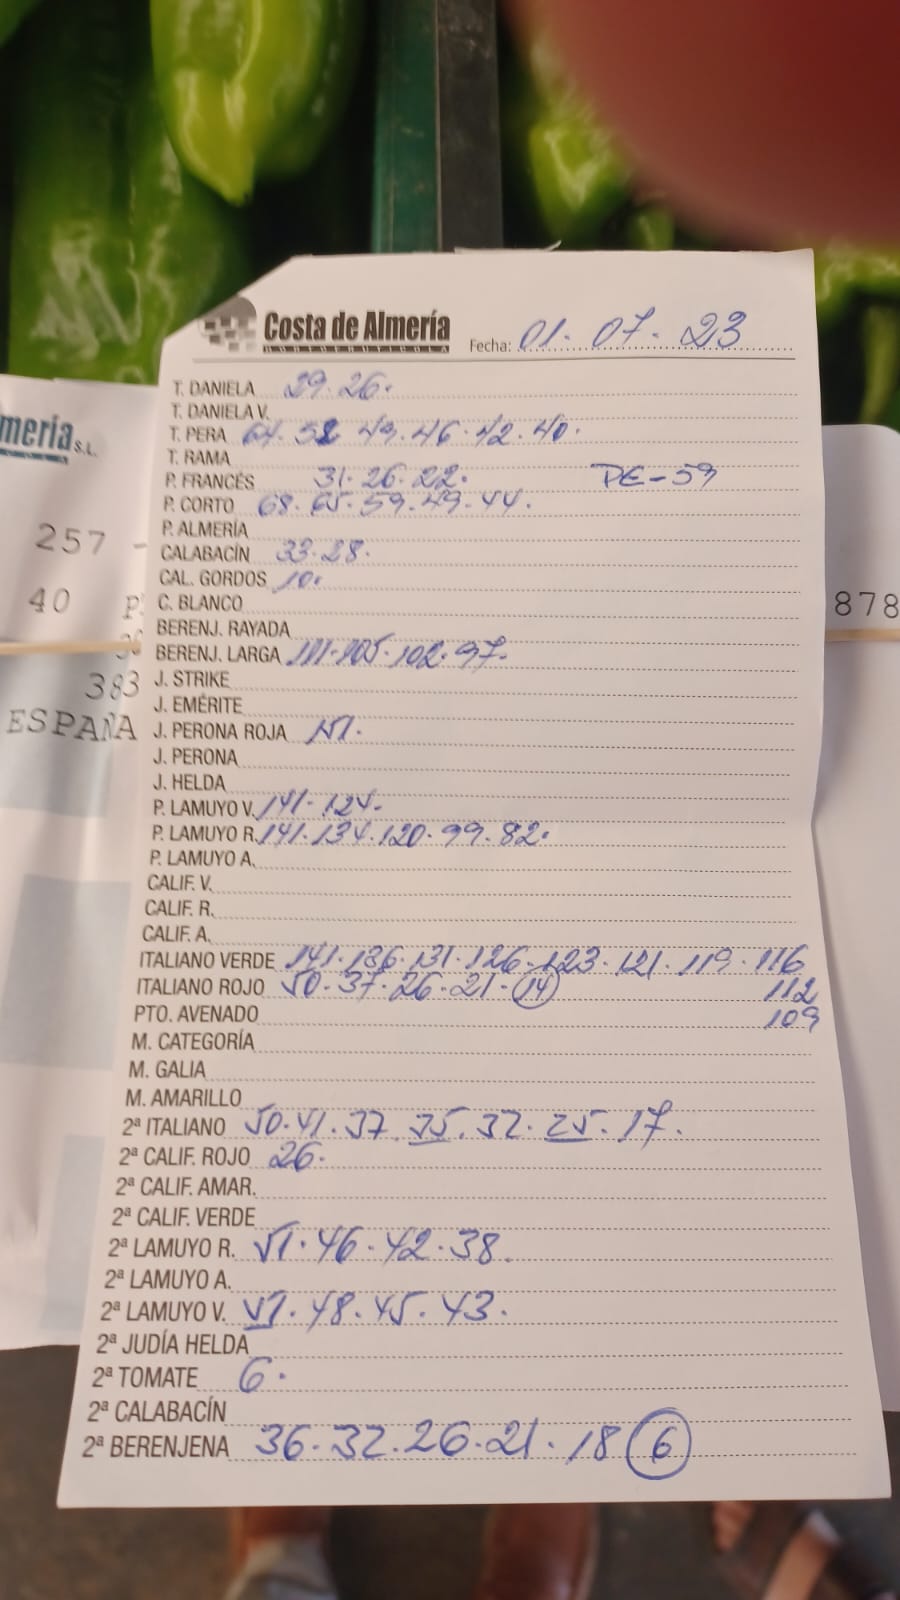 Costa de Almería
HORTOFRUTICOLA
Fecha: 01. 07. 23
T. DANELA 29. 26.
T. DANIELA V.
T. PERA 64. 52 49. 46. 42. 40.
T. RAMA
P. FRANCÉS 31. 26. 22. PE-59
P. CORTO 68. 65. 59. 49. 44.
P. ALMERÍA
CALABACÍN 33. 28.
CAL. GORDOS 10.
C. BLANCO
BERENJ. RAYADA
BERENJ. LARGA 111. 105. 102. 97.
J. STRIKE
J. EMÉRITE
J. PERONA ROJA 151.
J. PERONA
J. HELDA
P. LAMUYO V. 141. 124.
P. LAMUYO R. 141. 134. 120. 99. 82.
P. LAMUYO A.
CALIF. V.
CALIF. R.
CALIF. A.
ITALIANO VERDE 141. 136. 131. 126. 123. 121. 119. 116
ITALIANO ROJO 50. 37. 26. 21. 14 112
PTO. AVENADO 109
M. CATEGORÍA
M. GALIA
M. AMARILLO
2ª ITALIANO 50. 41. 37. 35. 32. 25. 17.
2ª CALIF. ROJO 26.
2ª CALIF. AMAR.
2ª CALIF. VERDE
2ª LAMUYO R. 51. 46. 42. 38.
2ª LAMUYO A.
2ª LAMUYO V. 51. 48. 45. 43.
2ª JUDÍA HELDA
2ª TOMATE 6.
2ª CALABACÍN
2ª BERENJENA 36. 32. 26. 21. 18 6
mería S.L.
257 -
40
383
ESPAÑA
878